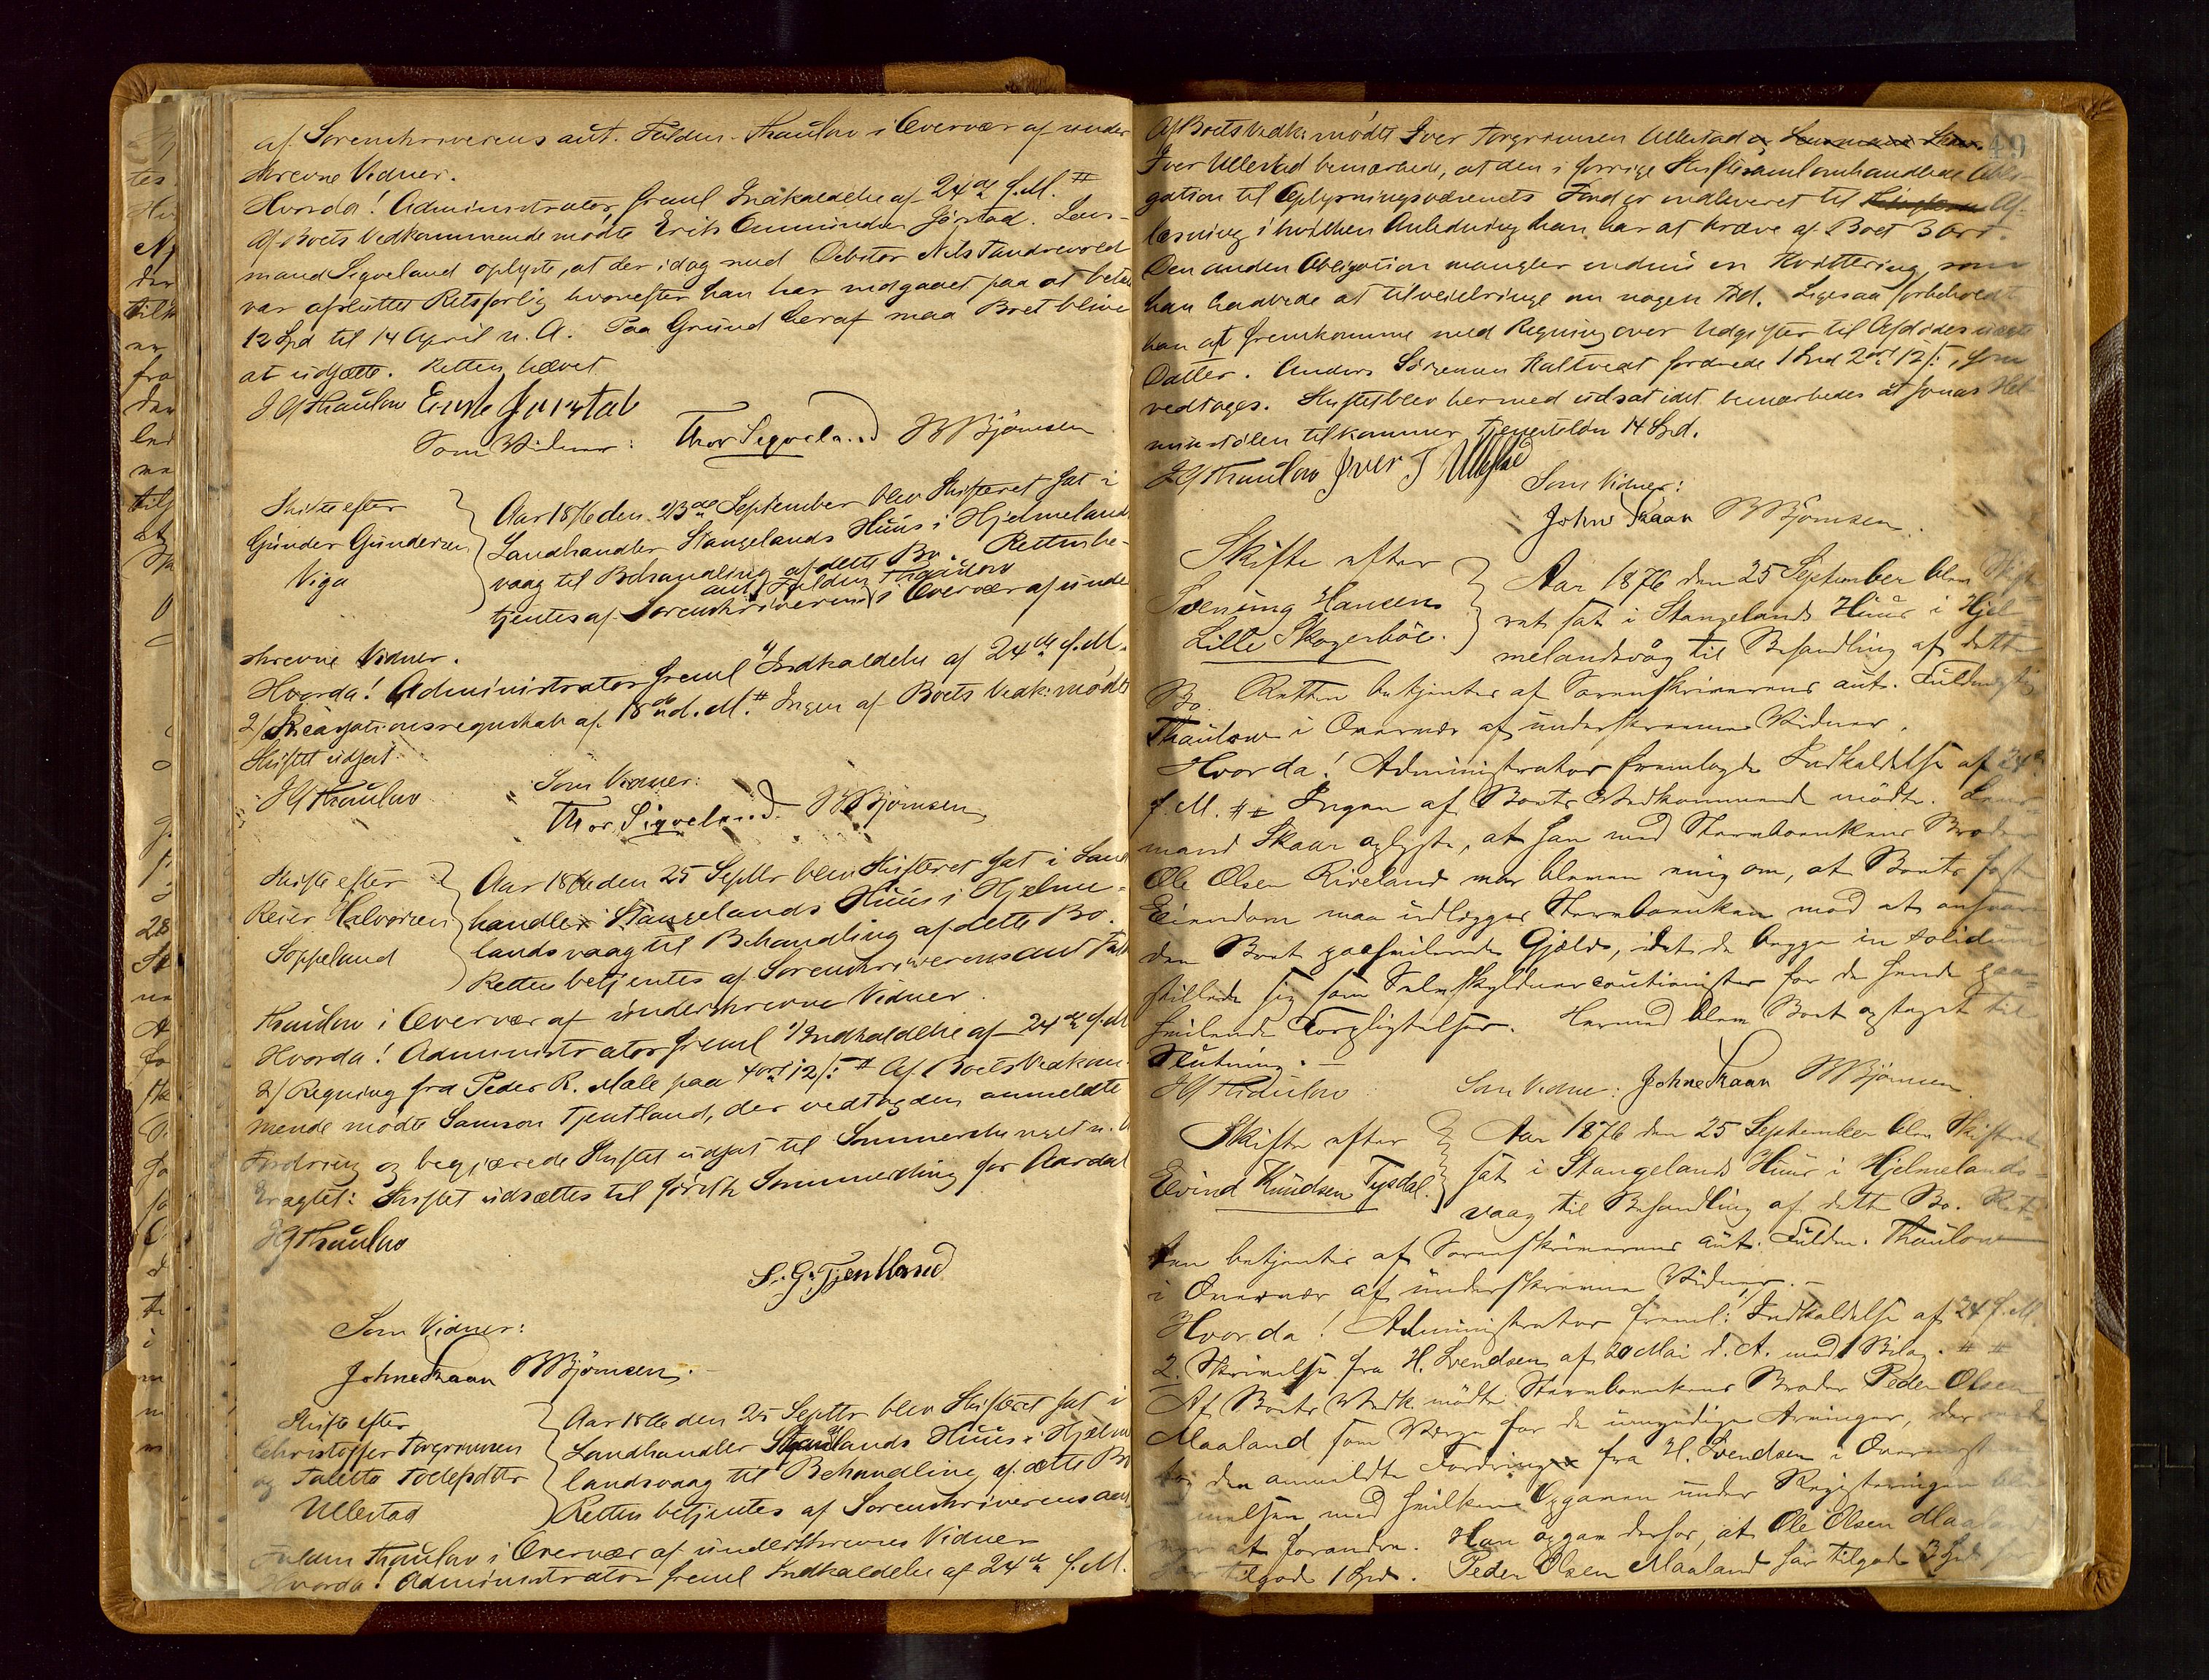 af Sorenskriverens aut. Fuldm. Thaulow i Overvær af under
skrevne Vidner.
Hvorda! Administrator freml Indkaldelse af 24de f.M. #
Af Boets Vedkommende mødte Erik Omundsen Jørstad. Lens-
mand Sigveland oplyste, at der idag med Debitor Nils Tandrevold
var afsluttet Retsforlig hvorefter han har indgaaet paa at betale
12 Spd til 14 April n. A. Paa Grund heraf maa Boet blive
at udsætte. Retten hævet
JGThaulow
Som Vidner: Thor Sigveland BBjörnsen
Skifte efter
Gunder Gundersen
Viga
Aar 1876 den 23de September blev Skifteret sat i
Landhandler Stangelands Huus i Hjelmelands
vaag til Behandling af dette Bo. Retten be-
tjentes af Sorenskriverens aut Fuldm Thaulow i Overvær af unde
skrevne Vidner.
Hvorda! Administrator freml 1/ Indkaldelse af 24de f.M.
2/ Reagationsregnskab af 18de d.M. # Ingen af Boets Vedk: mødte
Skiftet udsat.
JGThaulow
Som Vidner:
Thor Sigveland BBjörnsen
Skifte efter
Reier Halvorsen
Soppeland
Aar 1876 den 25 Septbr blev Skifteret sat i Land
handler Stangelands Huus i Hjelme-
landsvaag til Behandling af dette Bo.
Retten betjentes af Sorenskriverens aut Fuld
Thaulow i Overvær af underskrevne Vidner.
Hvorda! Administrator freml 1/ Indkaldelse af 24de f.M
2/ Regning fra Peder R. Mæle paa 4 ort 12 /: # Af Boets Vedkom
mende mødte Samson Tjentland, der vedtog den anmeldte
Fordring og begjærede Skiftet udsat til Sommerthinget n. A
Eragtet: Skiftet udsættes til første Sommerthing for Aardal
JGThaulow
S. G. Tjentland
Som Vidner:
Johne Skaar BBjörnsen.
Skifte efter
Christoffer Torgrimsen
og Talette
Ullestad
Aar 1876 den 25 Septbr blev Skifteret sat i
Landhandler Stangelands Huus i Hjelme
landsvaag til Behandling af dette Bo
Retten betjentes af Sorenskriverens aut
Fuldm Thaulow i Overvær af underskrevne Vidner
Hvorda! Administrator freml Indkaldelse af 24de f.M.
49
Af Boets Vedk: mødte Iver Torgrimsen Ullestad
Iver Ullestad bemærkede, at den i forrige Skiftesaml omhandlede Obli-
gation til Oplysningsvæsenets Fond er indleveret til Af-
læsning i hvilken Anledning han har at kræve af Boet 3 Ort.
Den anden Obligation mangler endnu en Kvittering, som
han lovede at tilveiebringe om nogen Tid. Ligesaa forbeholdt
han at fremkomme med Regning over Udgifter til Afdødes
Datter. Anders Sørensen Kaltveit fordrede 1 Spd 2 ort 12 /:, som
vedtoges. Skiftet blev hermed udsat idet bemærkedes at Jonas
tilkommer Tjenesteløn 14 Spd.
JGThaulow Iver T Ullestad
Som Vidner:
Johne Skaar BBjörnsen.
Skifte efter
Svenung Hansen
Lille Skogerböe.
Aar 1876 den 25 September blev Skifte
ret sat i Stangelands Huus i Hjel-
melandsvåg til Behandling af dette
Bo. Retten betjentes af Sorenskriverens aut. Fuldmægtig
Thaulow i Overvær af underskrevne Vidner.
Hvorda! Administrator fremlagde Indkaldelse af 24de
f. M. ## Ingen af Boets Vedkommende mødte. Lens-
mand Skaar oplyste, at han med Stervboenkens Broder
Ole Olsen Riveland var bleven enig om, at Boets faste
Eiendom maa udlægges Stervboenken mod at ansvare
den Boet paahvilende Gjæld, idet de begge in solidum
stillede sig som Selvskyldnercautionister for de hende paa-
hvilende Forpligtelser. Hermed blev Boet optaget til
Slutning. –
JGThaulow Som Vidner: Johne Skaar BBjörnsen
Skifte efter
Eivind Knudsen Tysdal.
Aar 1876 den 25 September blev Skifteret
sat i Stangelands Huus i Hjelmelands-
vaag til Behandling af dette Bo. Ret-
ten betjentes af Sorenskriverens aut. Fuldm. Thaulow
i Overvær af underskrevne Vidner. –
Hvorda! Administrator freml: 1/ Indkaldelse af 24 f.M.
2. Skrivelse fra H. Svendsen af 20 Mai d. A. med 1 Bilag. ##
Af Boets Vedk mødte Stervboenkens Broder Peder Olsen
Maaland som Værge for de umyndige Arvinger, der
tog den anmeldte Fordring fra H. Svendsen i Overenst
melsen med hvilken Opgaven under Registeringen
at forandre. Han opgav derhos, at Ole Olsen Maaland
har tilgode 1 Spd. Peder Olsen Maaland har tilgode 3 Spd